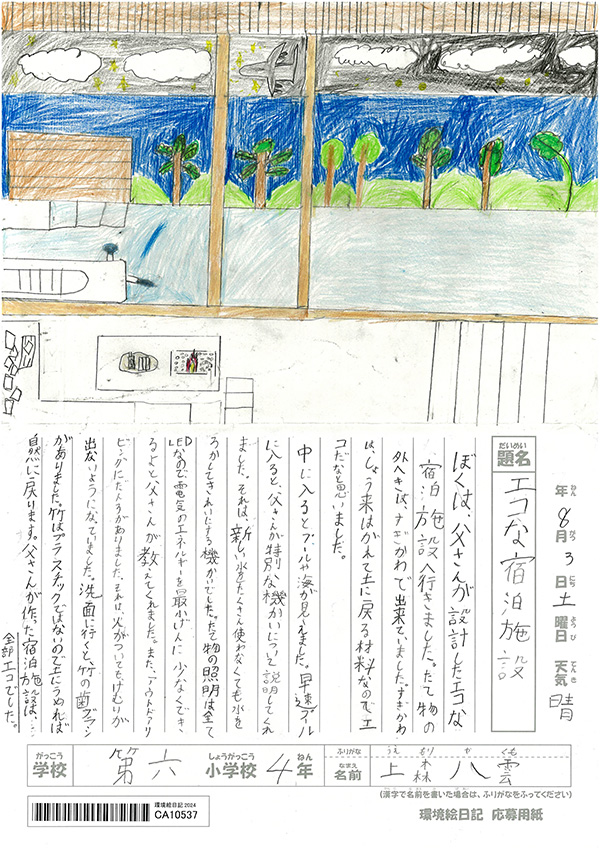 年 8月 3日 土曜日 天気 晴
ねん がつ にち ようび てんき
だいめい
題名 エコな宿泊施設
ぼくは、父さんが設計したエコな
宿泊施設へ行きました。たて物の
外へきは、すぎかわで出来ていました。すぎかわ
は、しょう来はかれて土に戻る材料なので、エ
コだなと思いました。
中に入るとプールや海が見えました。早速プール
に入ると、父さんが特別な機かいについて説明してくれ
ました。それは、新しい水をたくさん使わなくても水を
ろかしてきれいにする機かいでした。たて物の照明は全て
LEDなので、電気のエネルギーを最小げんに少なくでき
るよと父さんが教えてくれました。また、アウトドアリ
ビングにだんろがありました。それは、火がついてもけむりが
出ないようになっていました。洗面に行くと、竹の歯ブラシ
がありました。竹はプラスチックではないので土にうめれば
自然に戻ります。父さんが作った宿泊施設は、
全部エコでした。
がっこう しょうがっこう ねん ふりがな うえ もり や くも
学校 第六 小学校 4年 なまえ 名前 上森八雲
(漢字で名前を書いた場合は、ふりがなをふってください)
環境絵日記 2024
CA10537
環境絵日記 応募用紙